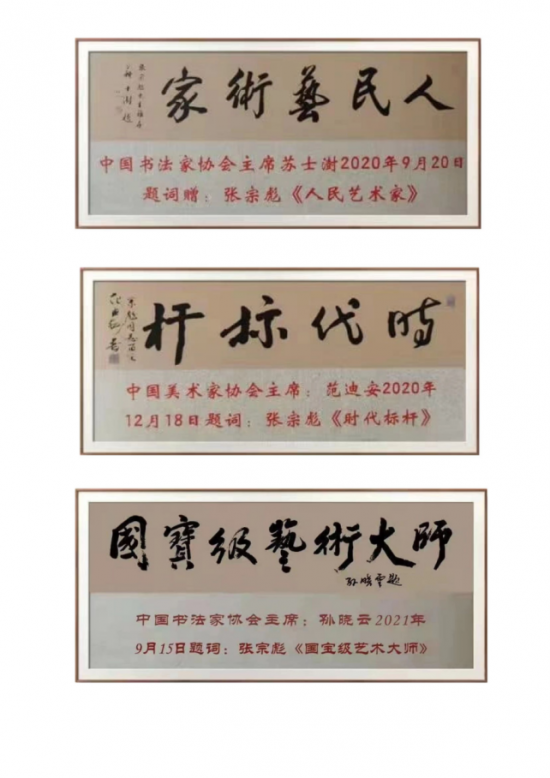 人民藝術家
中国书法家协会主席苏士澍2020年9月20日
题词赠：张宗彪《人民艺术家》
时代标杆
中国美术家协会主席：范迪安2020年
12月18日题词：张宗彪《时代标杆》
國寶级藝術大師
孙曉雲题
中国书法家协会主席：孙晓云2021年
9月15日题词：张宗彪《国宝级艺术大师》